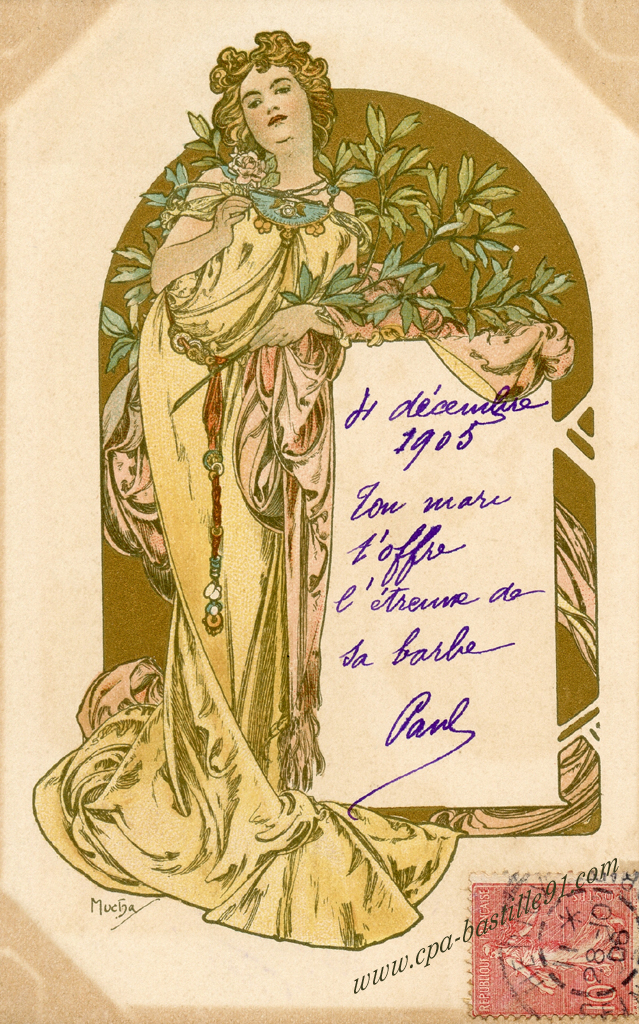 4 décembre
1905
Ton mari
t'offre
l'étrenne de
sa barbe
Paul
Mucha
www.cpa-bastille91.com
REPUBLIQUE FRANCAISE
POSTES
10
28-10
05